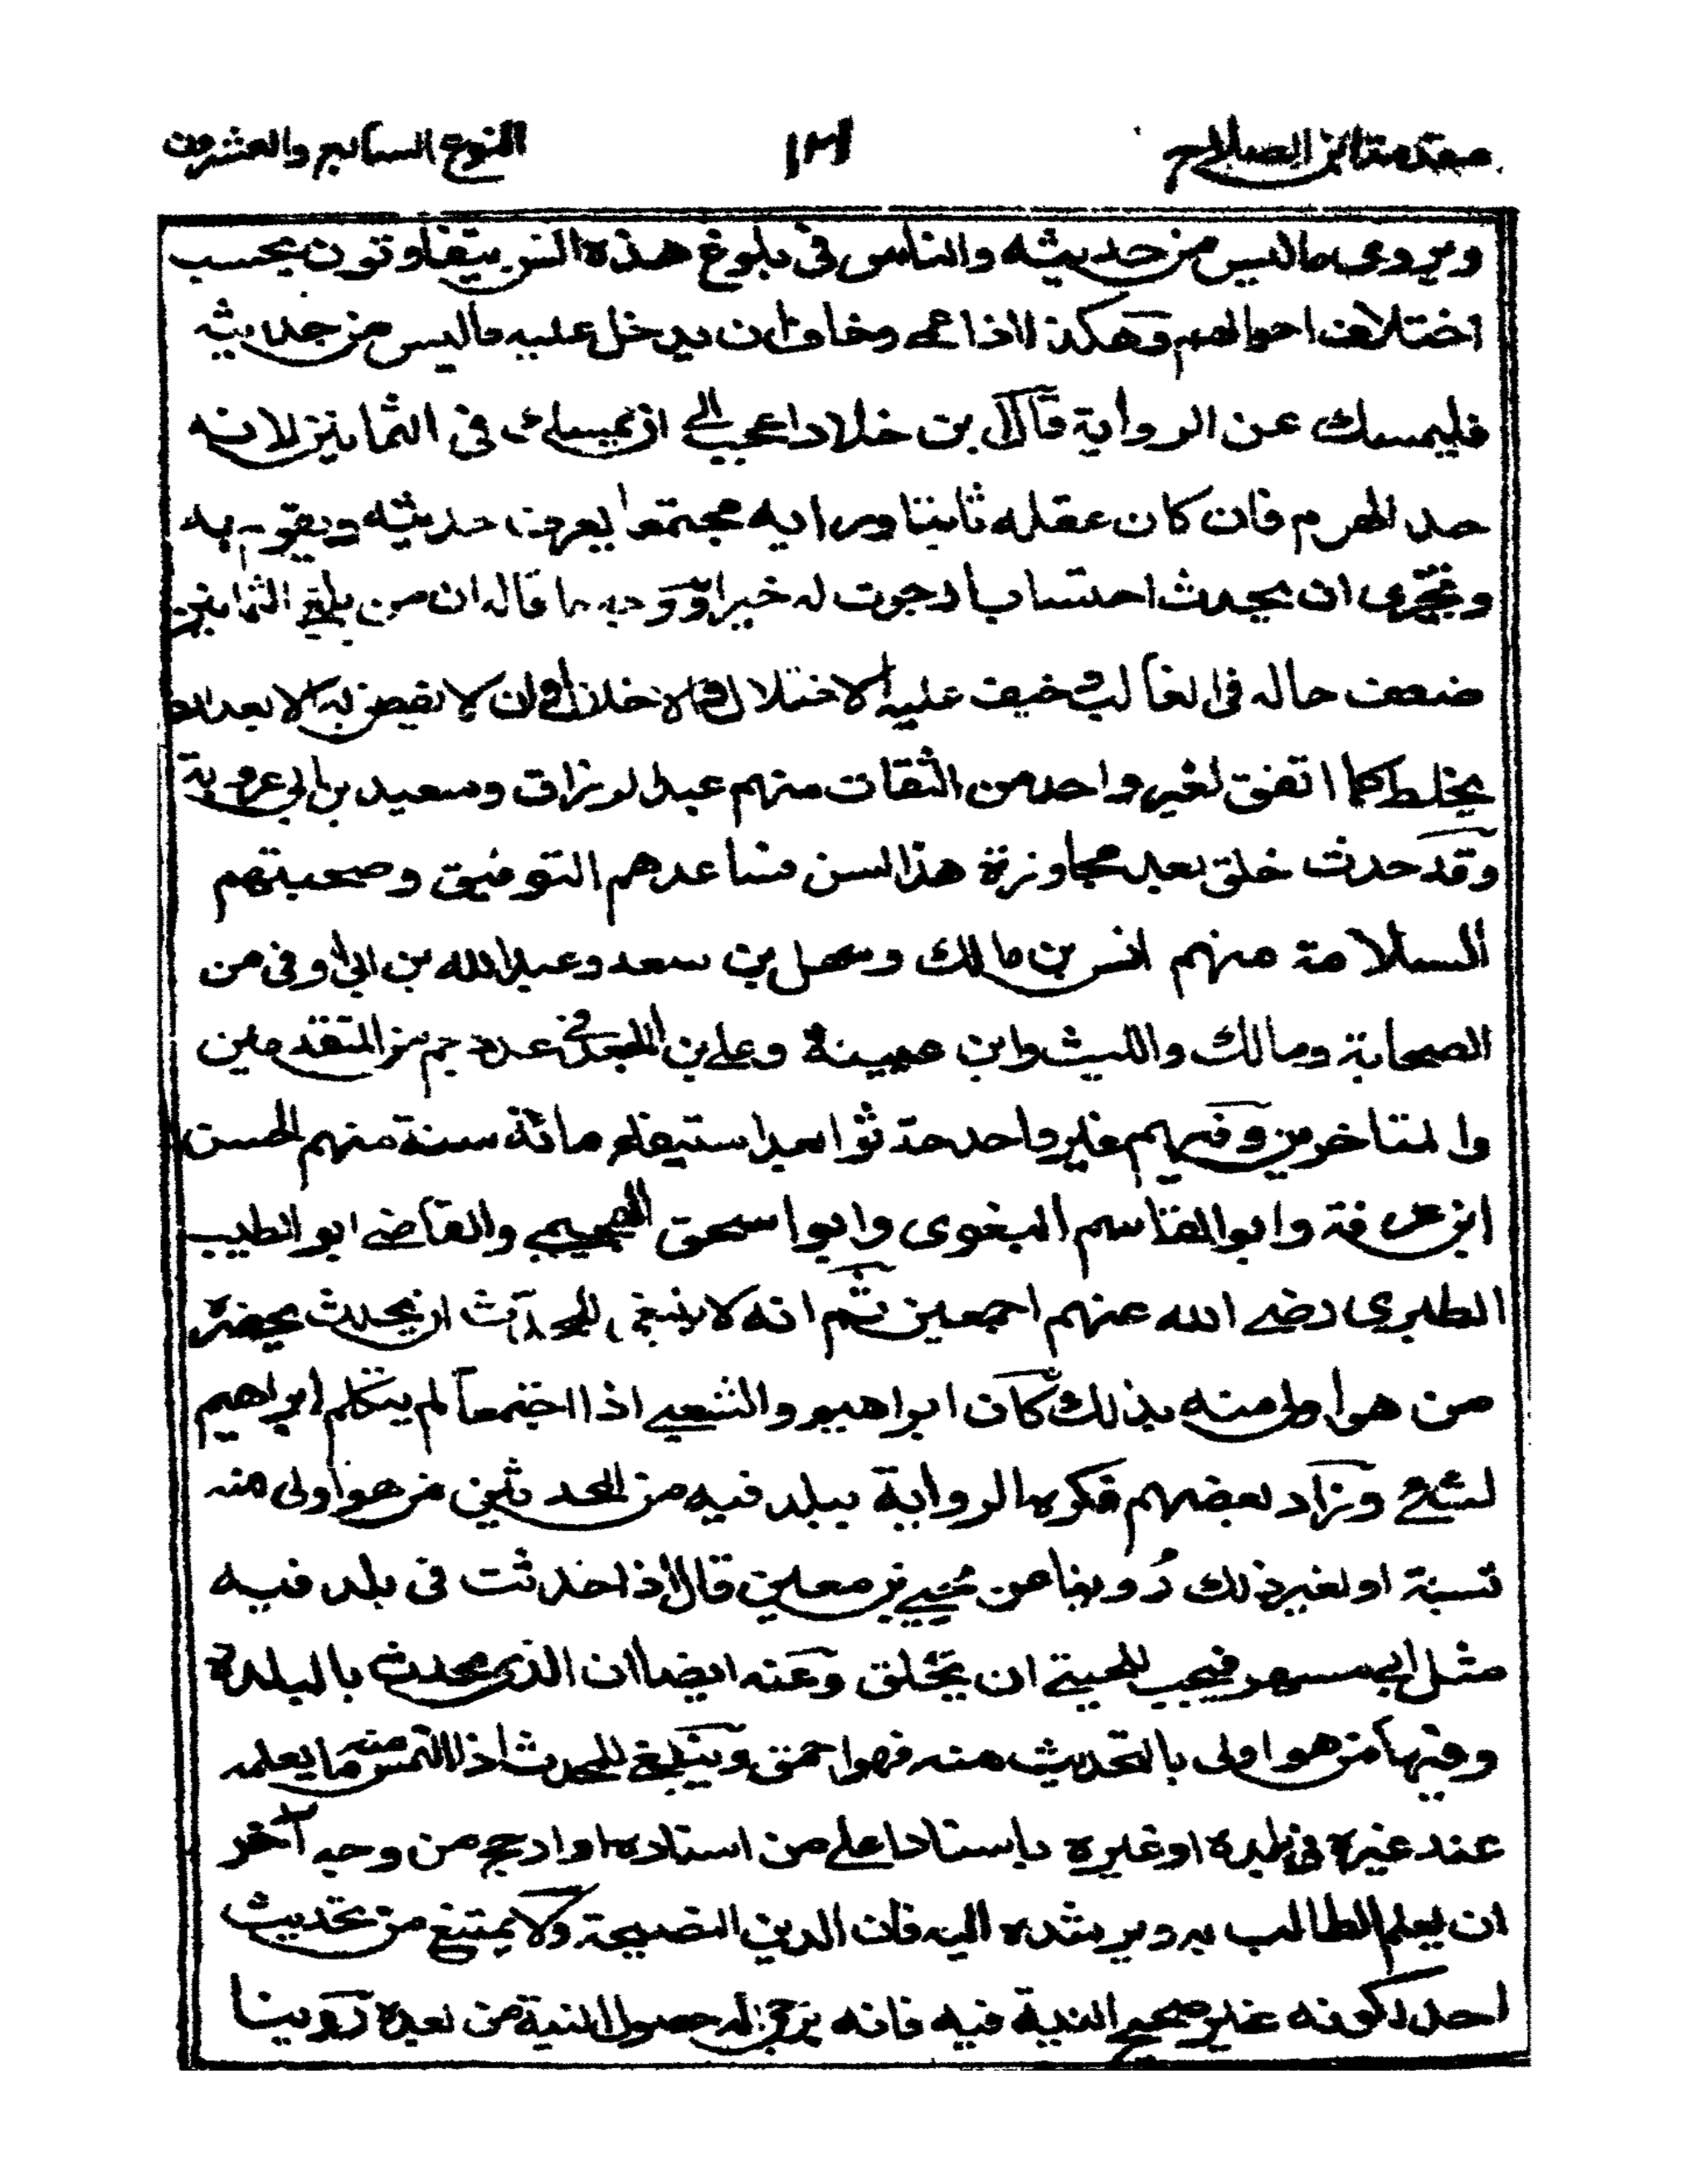 مقدمة ابن الصلاح ١٢١ النوع السابع والعشرون
ويروى ما ليس من حديثه والناس فى بلوغ هذه السن يتفاوتون بحسب
اختلاف احوالهم وهكذا اذا عمى وخاف ان يدخل عليه ما ليس من حديثه
فليمسك عن الرواية قال ابن خلاد اعجب الى ان يمسك فى الثمانين لانه
حد الهرم فان كان عقله ثابتا ورايه مجتمعا يعرف حديثه ويقوم به
وتحرى ان يحدث احتسابا رجوت له خيرا ووجه ما قاله ان من بلغ الثمانين
ضعف حاله فى الغالب وخيف عليه الاختلال والاخلال وان لا يفطن له الا بعد ان
يخلط كما اتفق لغير واحد من الثقات منهم عبد الرزاق وسعيد بن ابى عروبة
وقد حدث خلق بعد مجاوزة هذا السن فساعدهم التوفيق وصحبتهم
السلامة منهم انس بن مالك وسهل بن سعد وعبد الله بن ابى اوفى من
الصحابة ومالك والليث وابن عيينة وعلى بن الجعد فى عدد جم من المتقدمين
والمتاخرين وفيهم غير واحد حدثوا بعد استيفاء مائة سنة منهم الحسن
ابن عرفة وابو القاسم البغوى وابو اسحق الهجيمى والقاضى ابو الطيب
الطبرى رضى الله عنهم اجمعين ثم انه لا ينبغى للمحدث ان يحدث بحضرة
من هو اولى منه بذلك كان ابراهيم والشعبى اذا اجتمعا لم يتكلم ابراهيم
بشئ وزاد بعضهم فكره الرواية ببلد فيه من المحدثين من هو اولى منه
نسبة او لغير ذلك روينا عن يحيى بن معين قال اذا حدثت فى بلد فيه
مثل ابى مسهر فيجب للحيتى ان تحلق وعنه ايضا ان الذى يحدث بالبلدة
وفيها من هو اولى بالتحديث منه فهو احمق وينبغى للمحدث اذا التمس منه ما يعلمه
عند غيره فى بلده او غيره باسناد اعلى من اسناده او ارجح من وجه آخر
ان يعلم الطالب به ويرشده اليه فان الدين النصيحة ولا يمتنع من تحديث
احد لكونه غير صحيح النية فيه فانه يرجى له حصول النية من بعده روينا